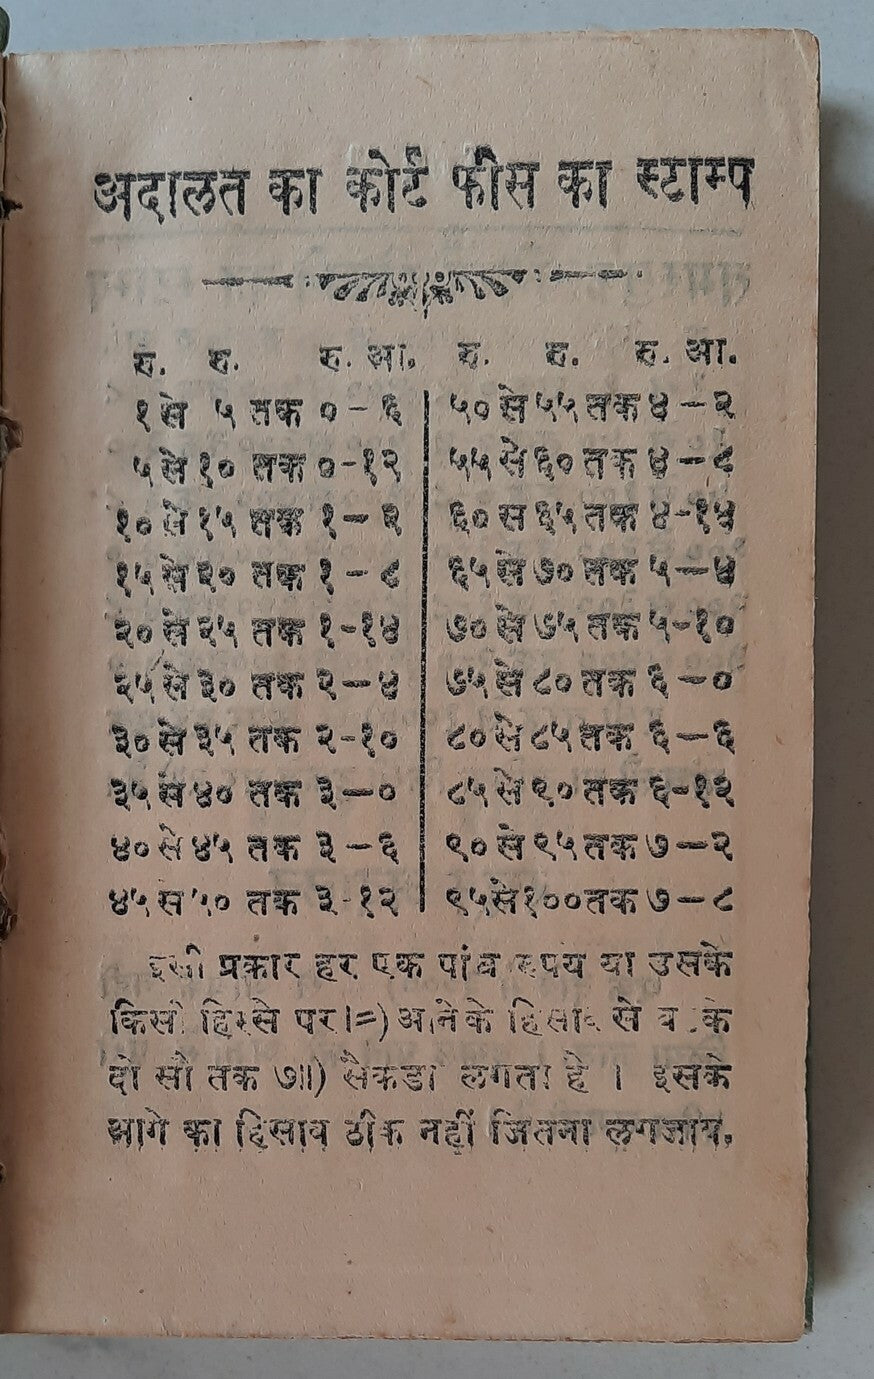 अदालत का कोर्ट फीस का स्टाम्प
रु. रु. रु. आ. रु. रु. रु. आ.
१ से ५ तक ०-६ ५० से ५५ तक ४-२
५ से १० तक ०-१२ ५५ से ६० तक ४-८
१० से १५ तक १-२ ६० स ६५ तक ४-१४
१५ से २० तक १-८ ६५ से ७० तक ५-४
२० से २५ तक १-१४ ७० से ७५ तक ५-१०
२५ से ३० तक २-४ ७५ से ८० तक ६-०
३० से ३५ तक २-१० ८० से ८५ तक ६-६
३५ स ४० तक ३-० ८५ से ९० तक ६-१२
४० से ४५ तक ३-६ ९० से ९५ तक ७-२
४५ स ५० तक ३-१२ ९५ से १०० तक ७-८
इसी प्रकार हर एक पांच रुपय या उसके
किसी हिस्से पर ।=) आनेके हिसाब से के
दो सौ तक ७॥) सैकडा लगता है । इसके
आगे का हिसाब ठीक नहीं जितना लगजाय.